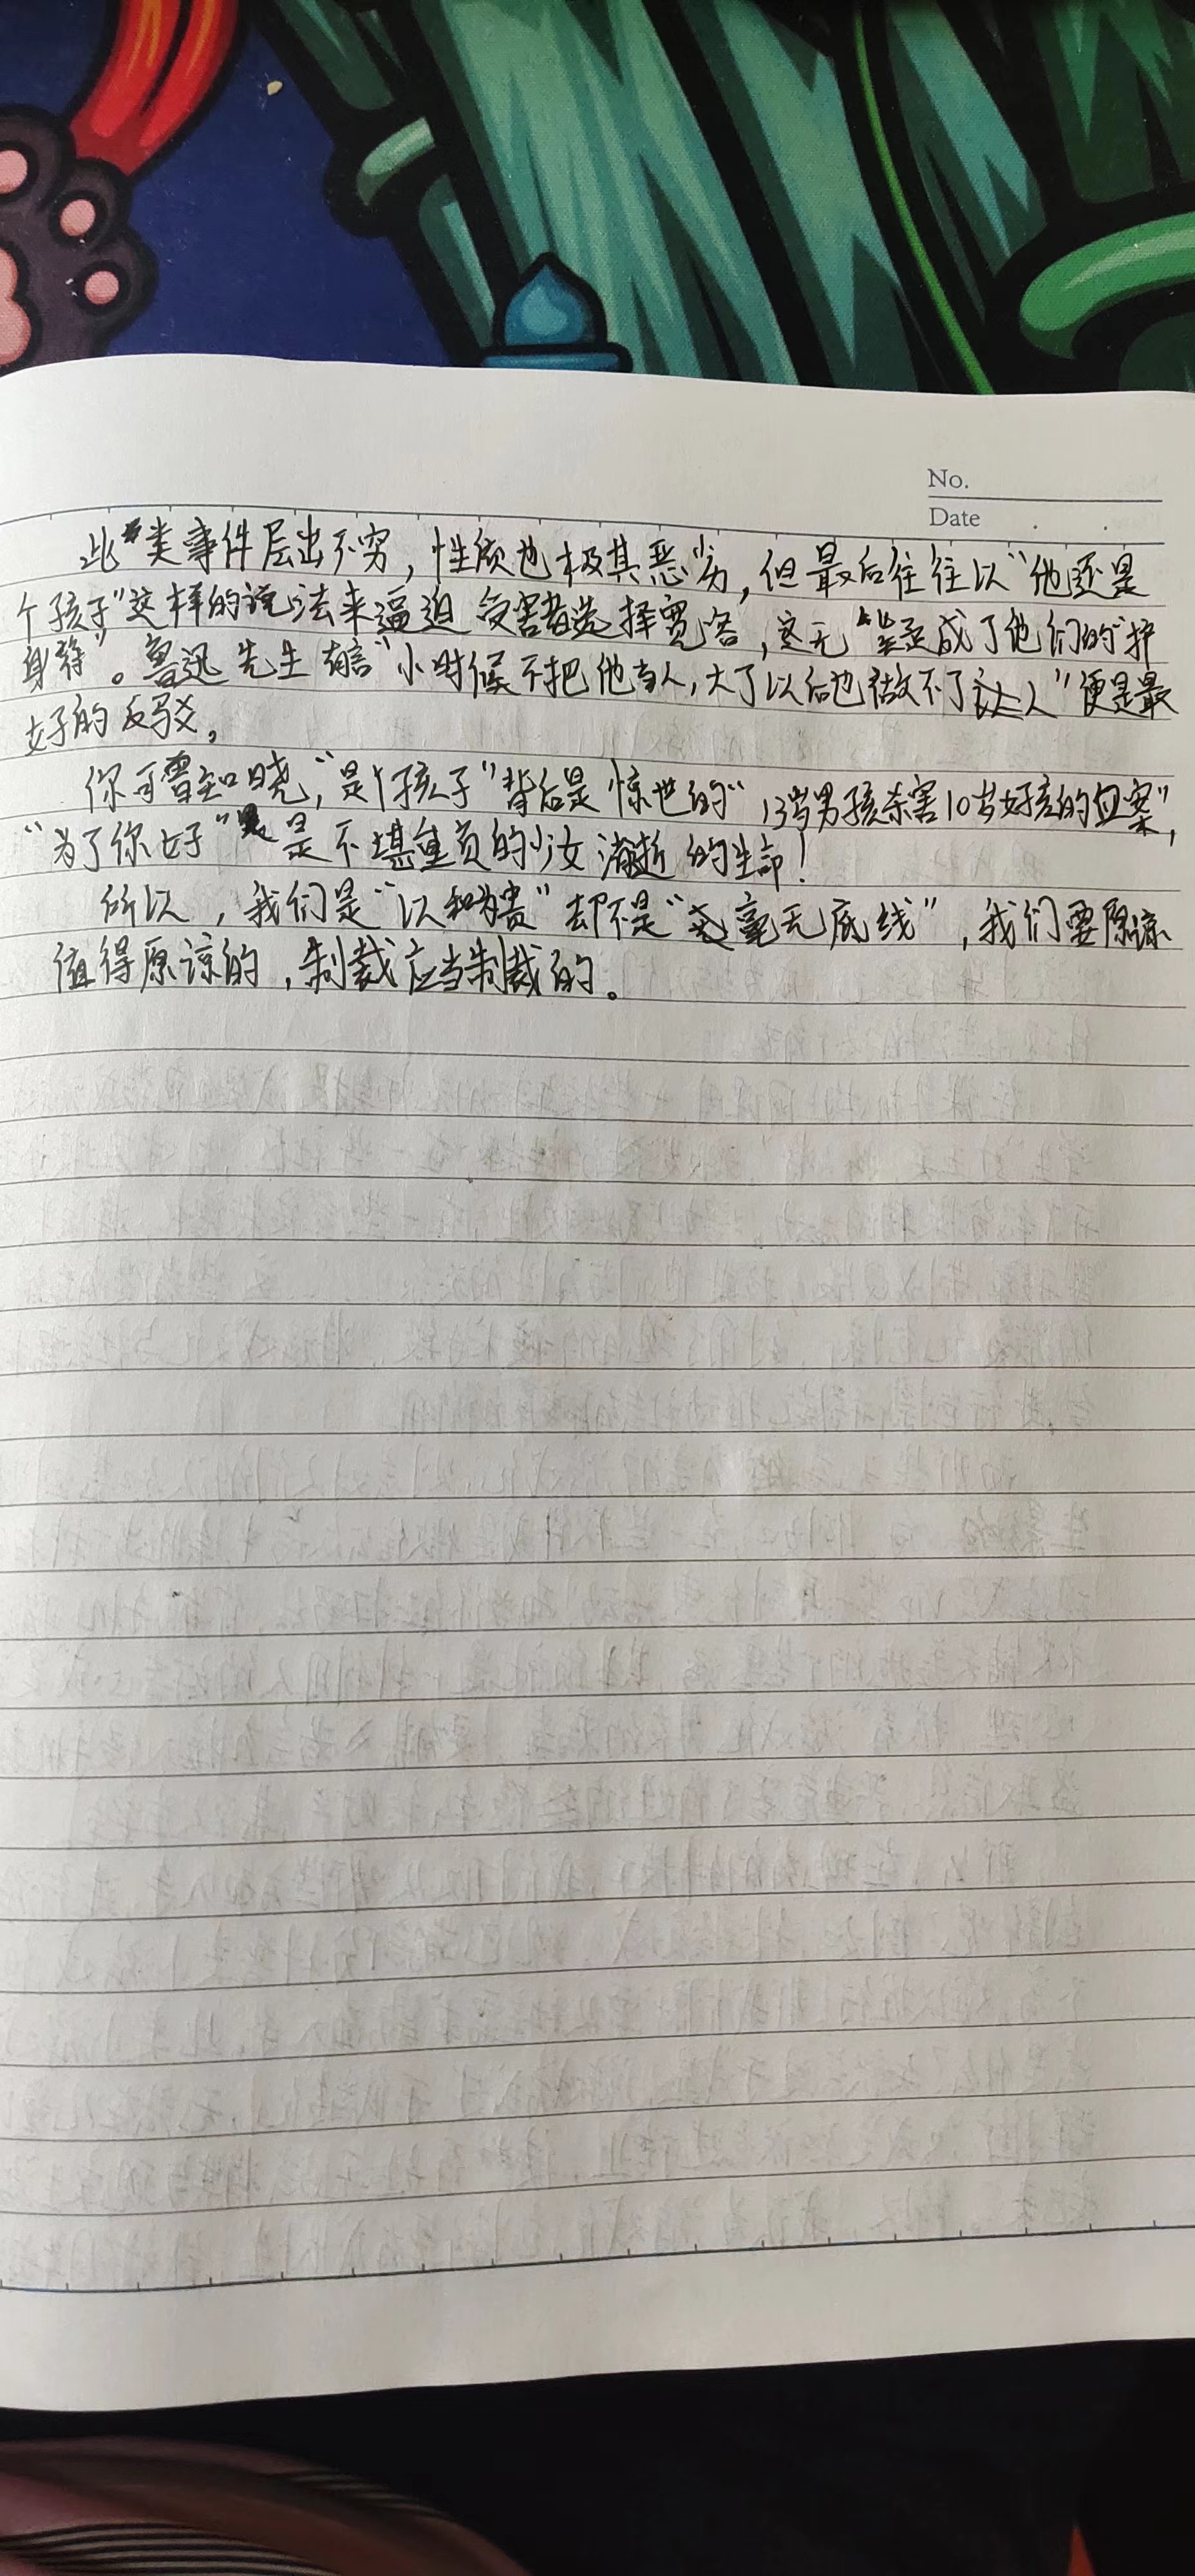 No.
Date
此类事件层出不穷，性质也极其恶劣，但最后往往以“他还是
个孩子”这样的说法来逼迫受害者选择宽容，这无疑成了他们的“护
身符”。鲁迅先生有言“小时候不把他当人，大了以后也做不了人”便是最
好的反驳。
你可曾知晓，“是个孩子”背后是惊世的“13岁男孩杀害10岁女孩的血案”，
“为了你好”是不堪重负的少女消逝的生命！
所以，我们是“以和为贵”却不是“毫无底线”，我们要原谅
值得原谅的，制裁应当制裁的。